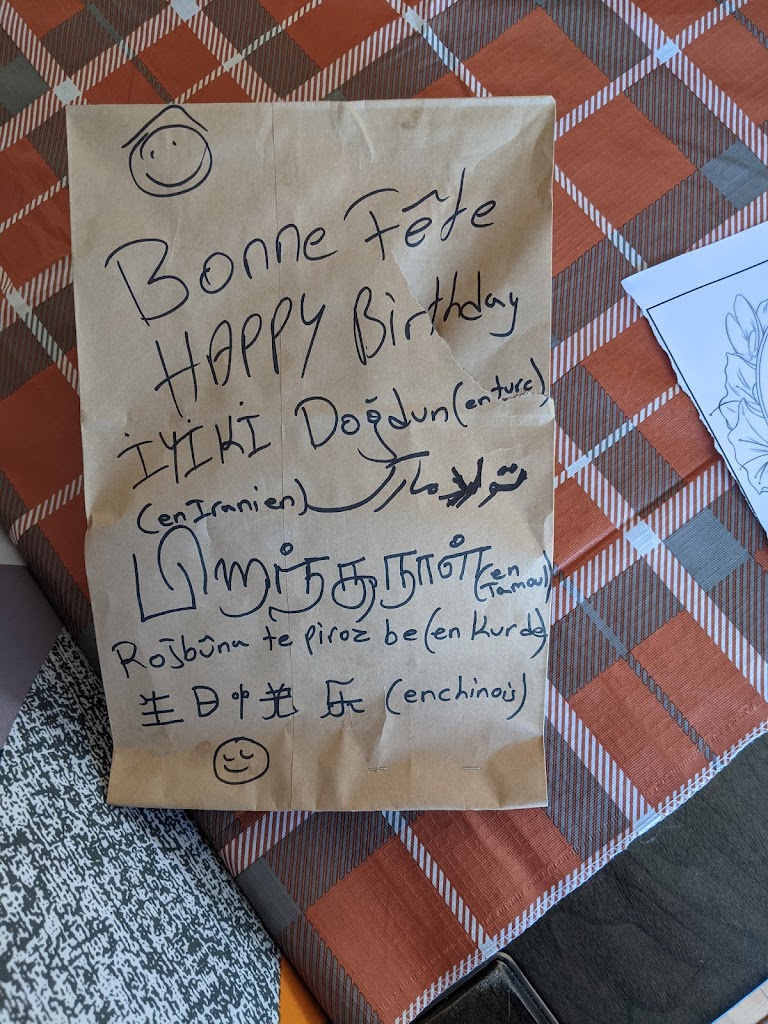 Bonne Fête
HAPPY Birthday
İYİKİ Doğdun (en turc)
(en Iranien) تولد مبارک
பிறந்தநாள் (en Tamoul)
Rojbûna te piroz be (en Kurde)
生日快 乐 (en chinois)